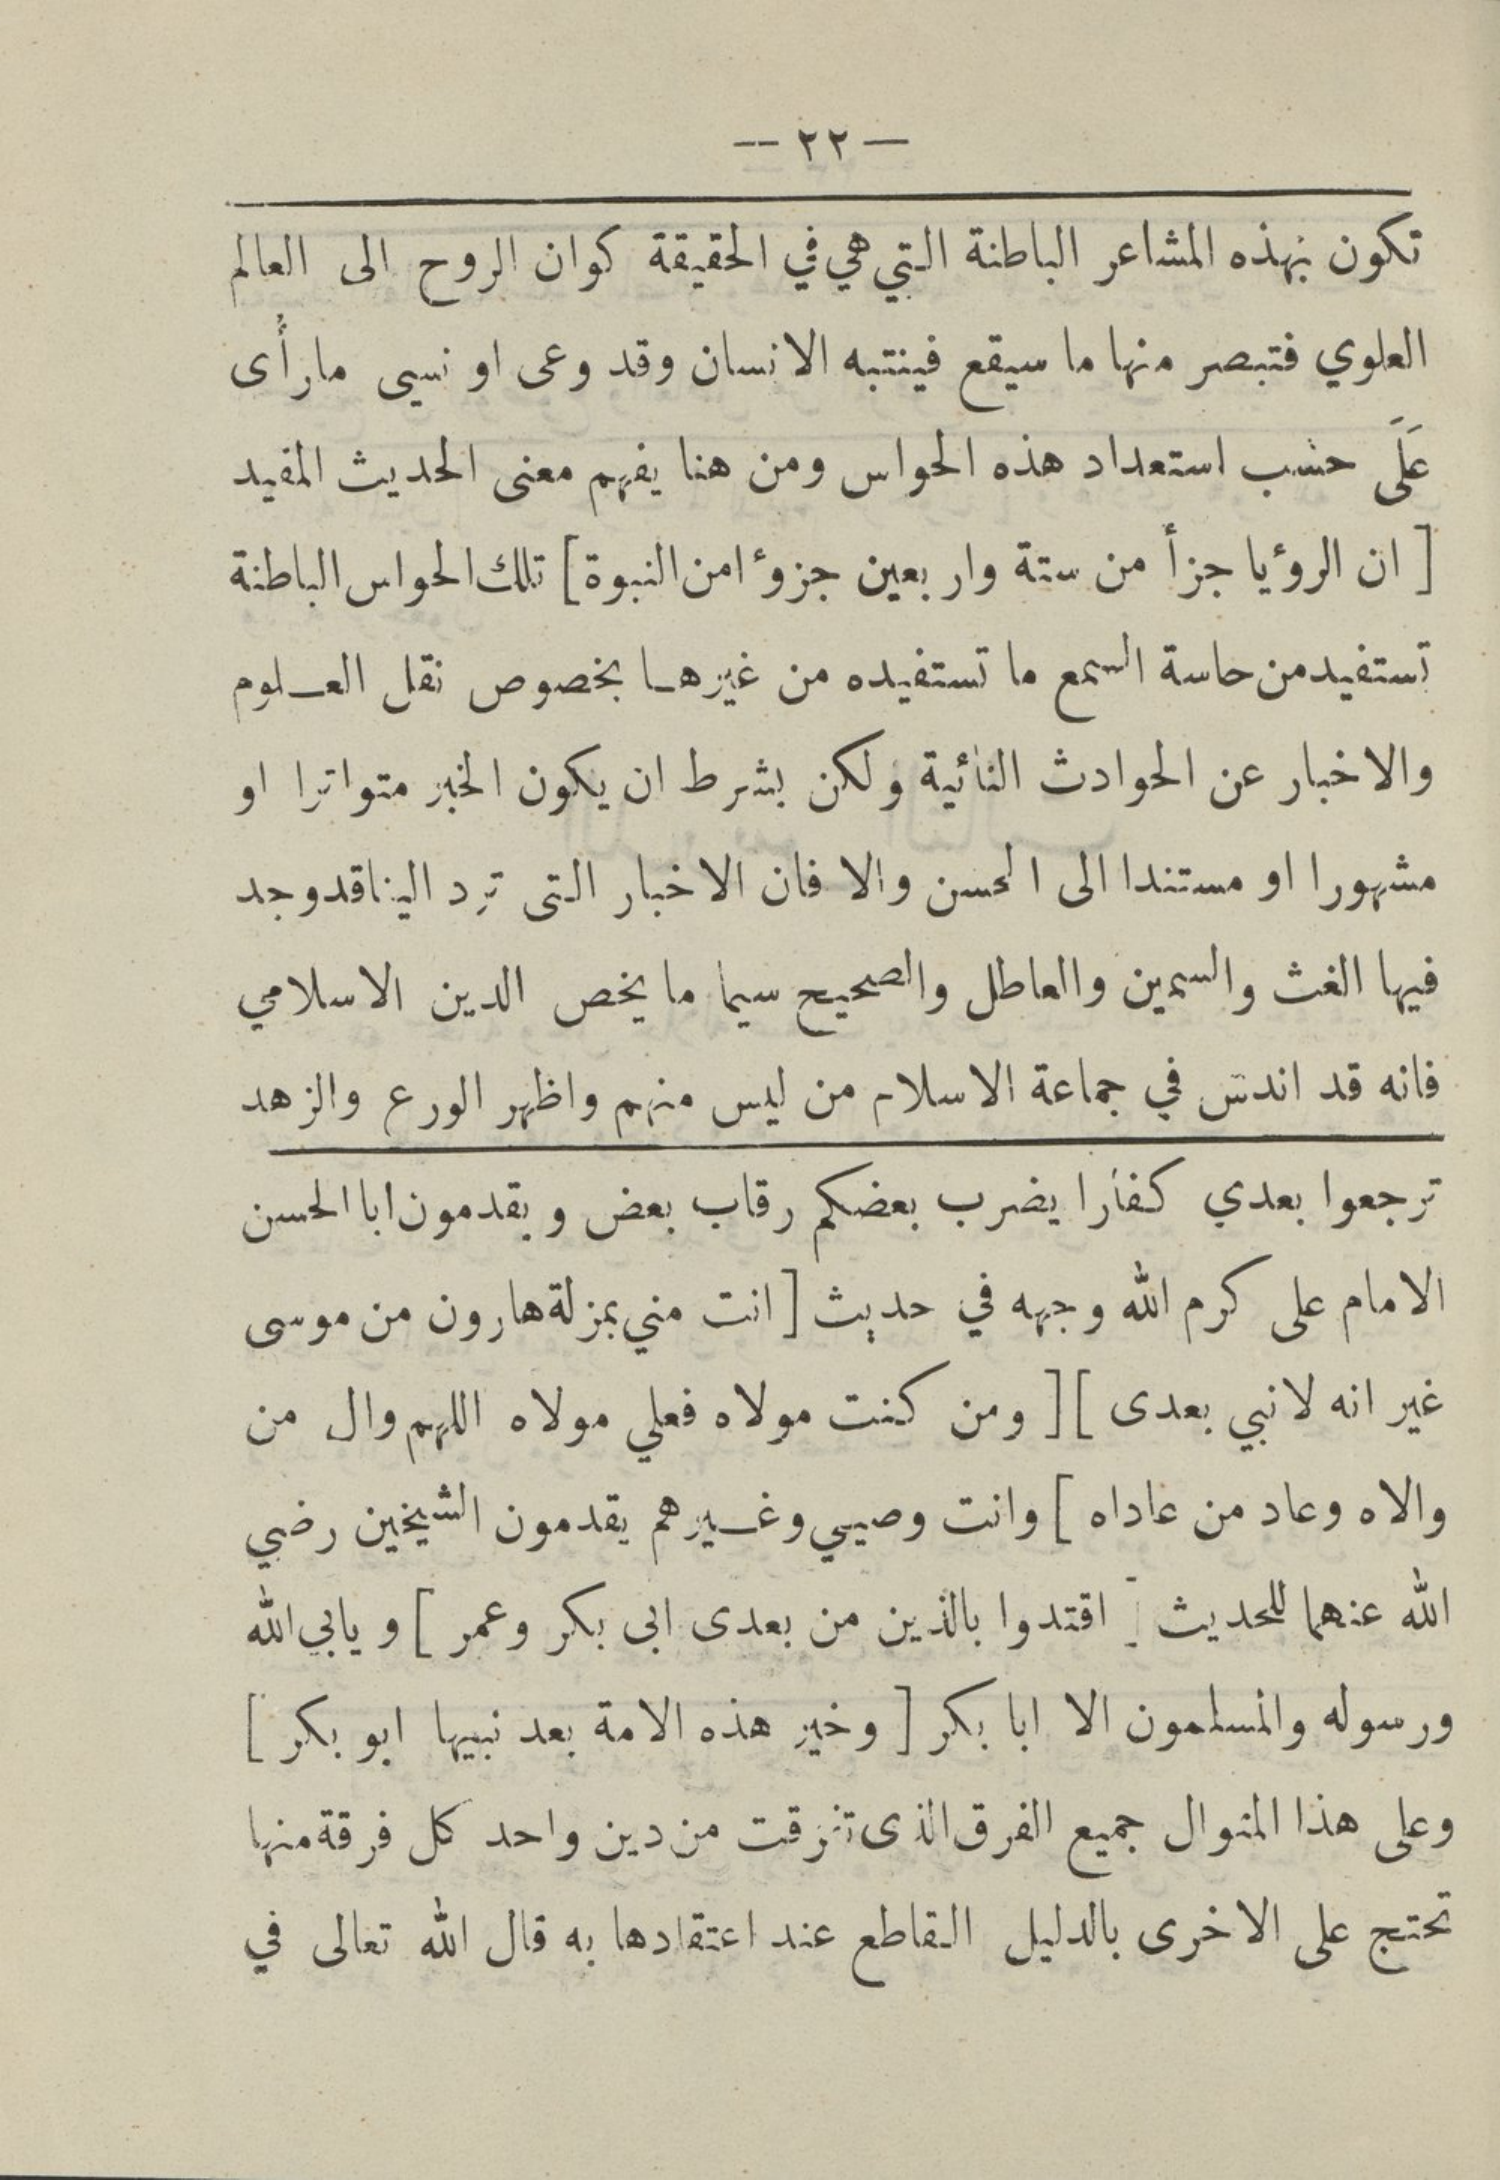 — ٢٢ —
تكون بهذه المشاعر الباطنة التي هي في الحقيقة كوان الروح الى العالم
العلوي فتبصر منها ما سيقع فينتبه الانسان وقد وعى او نسي مارأى
عَلَى حسب استعداد هذه الحواس ومن هنا يفهم معنى الحديث المفيد
[ ان الرؤيا جزأ من ستة واربعين جزوءا من النبوة ] تلك الحواس الباطنة
تستفيد من حاسة السمع ما تستفيده من غيرها بخصوص نقل العلوم
والاخبار عن الحوادث النائية ولكن بشرط ان يكون الخبر متواترا او
مشهورا او مستندا الى الحسن والا فان الاخبار التى ترد الينا قد وجد
فيها الغث والسمين والعاطل والصحيح سيما ما يخص الدين الاسلامي
فانه قد اندس في جماعة الاسلام من ليس منهم واظهر الورع والزهد
ترجعوا بعدي كفارا يضرب بعضكم رقاب بعض ويقدمون ابا الحسن
الامام على كرم الله وجهه في حديث [ انت مني بمنزلة هارون من موسى
غير انه لا نبي بعدى ] [ ومن كنت مولاه فعلي مولاه اللهم وال من
والاه وعاد من عاداه ] وانت وصيي وغيرهم يقدمون الشيخين رضي
الله عنهما للحديث [ اقتدوا بالذين من بعدى ابى بكر وعمر ] ويابي الله
ورسوله والمسلمون الا ابا بكر [ وخير هذه الامة بعد نبيها ابو بكر ]
وعلى هذا المنوال جميع الفرق الذى تفرقت من دين واحد كل فرقة منها
تحتج على الاخرى بالدليل القاطع عند اعتقادها به قال الله تعالى في